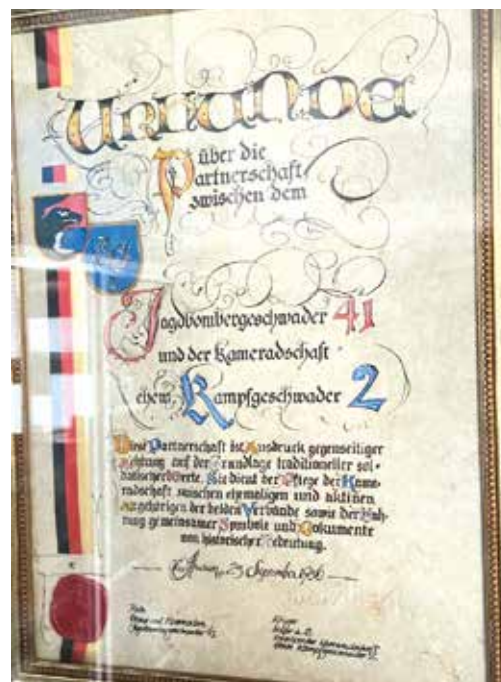 Urkunde
über die
Partnerschaft
zwischen dem
Jagdbombergeschwader 41
und der Kameradschaft
ehem. Kampfgeschwader 2
Diese Partnerschaft ist Ausdruck gegenseitiger
Achtung auf der Grundlage traditioneller sol-
datischer Werte. Sie dient der Pflege der Kame-
radschaft zwischen ehemaligen und aktiven
Angehörigen der beiden Verbände sowie der
gemeinsamer Symbole und Dokumente
von historischer Bedeutung.
Husum, 23. September